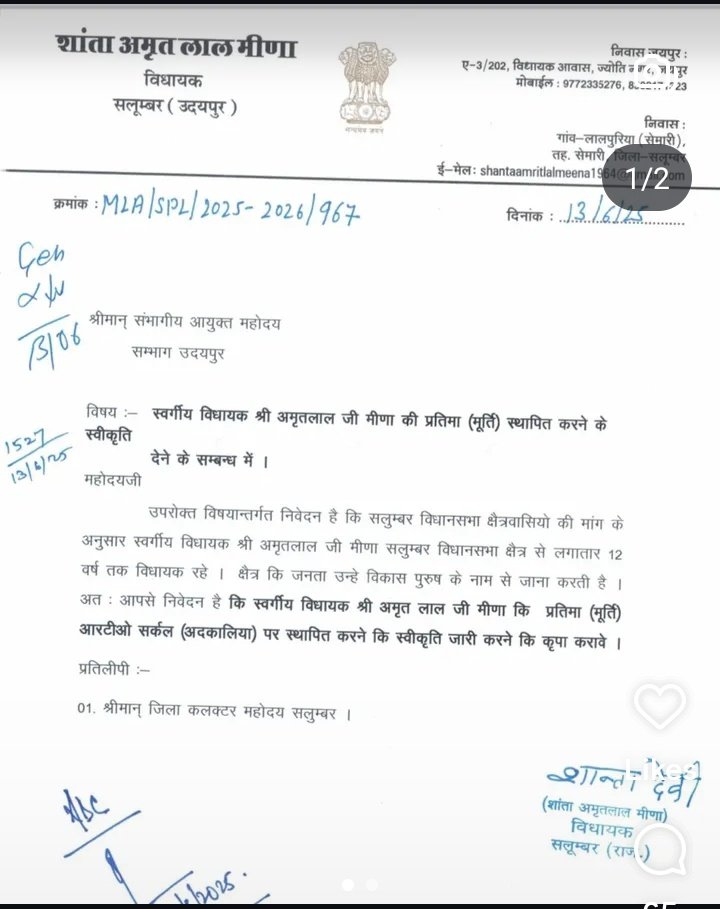 शांता अमृत लाल मीणा
विधायक
सलूम्बर ( उदयपुर )
निवास जयपुर :
ए-3/202, विधायक आवास, ज्योति
मोबाईल : 9772335276,
निवास :
गांव-लालपुरिया (सेमारी),
तह. सेमारी, जिला-सलूम्बर
ई-मेल: shantaamritlalmeena1964@
1/2
क्रमांक : MLA/SPL/2025-2026/967
दिनांक : 13/6/25
Gen
13/06
श्रीमान् संभागीय आयुक्त महोदय
सम्भाग उदयपुर
1527
13/6/25
विषय :– स्वर्गीय विधायक श्री अमृतलाल जी मीणा की प्रतिमा (मूर्ति) स्थापित करने के
स्वीकृति
देने के सम्बन्ध में ।
महोदयजी
उपरोक्त विषयान्तर्गत निवेदन है कि सलुम्बर विधानसभा क्षैत्रवासियो की मांग के
अनुसार स्वर्गीय विधायक श्री अमृतलाल जी मीणा सलुम्बर विधानसभा क्षैत्र से लगातार 12
वर्ष तक विधायक रहे । क्षैत्र कि जनता उन्हे विकास पुरुष के नाम से जाना करती है ।
अत : आपसे निवेदन है कि स्वर्गीय विधायक श्री अमृत लाल जी मीणा कि प्रतिमा (मूर्ति)
आरटीओ सर्कल (अदकालिया) पर स्थापित करने कि स्वीकृति जारी करने कि कृपा करावे ।
प्रतिलीपी :–
01. श्रीमान् जिला कलक्टर महोदय सलुम्बर ।
शान्ता देवी
(शांता अमृतलाल मीणा)
विधायक
सलूम्बर (राज.)
Likes
/2025.